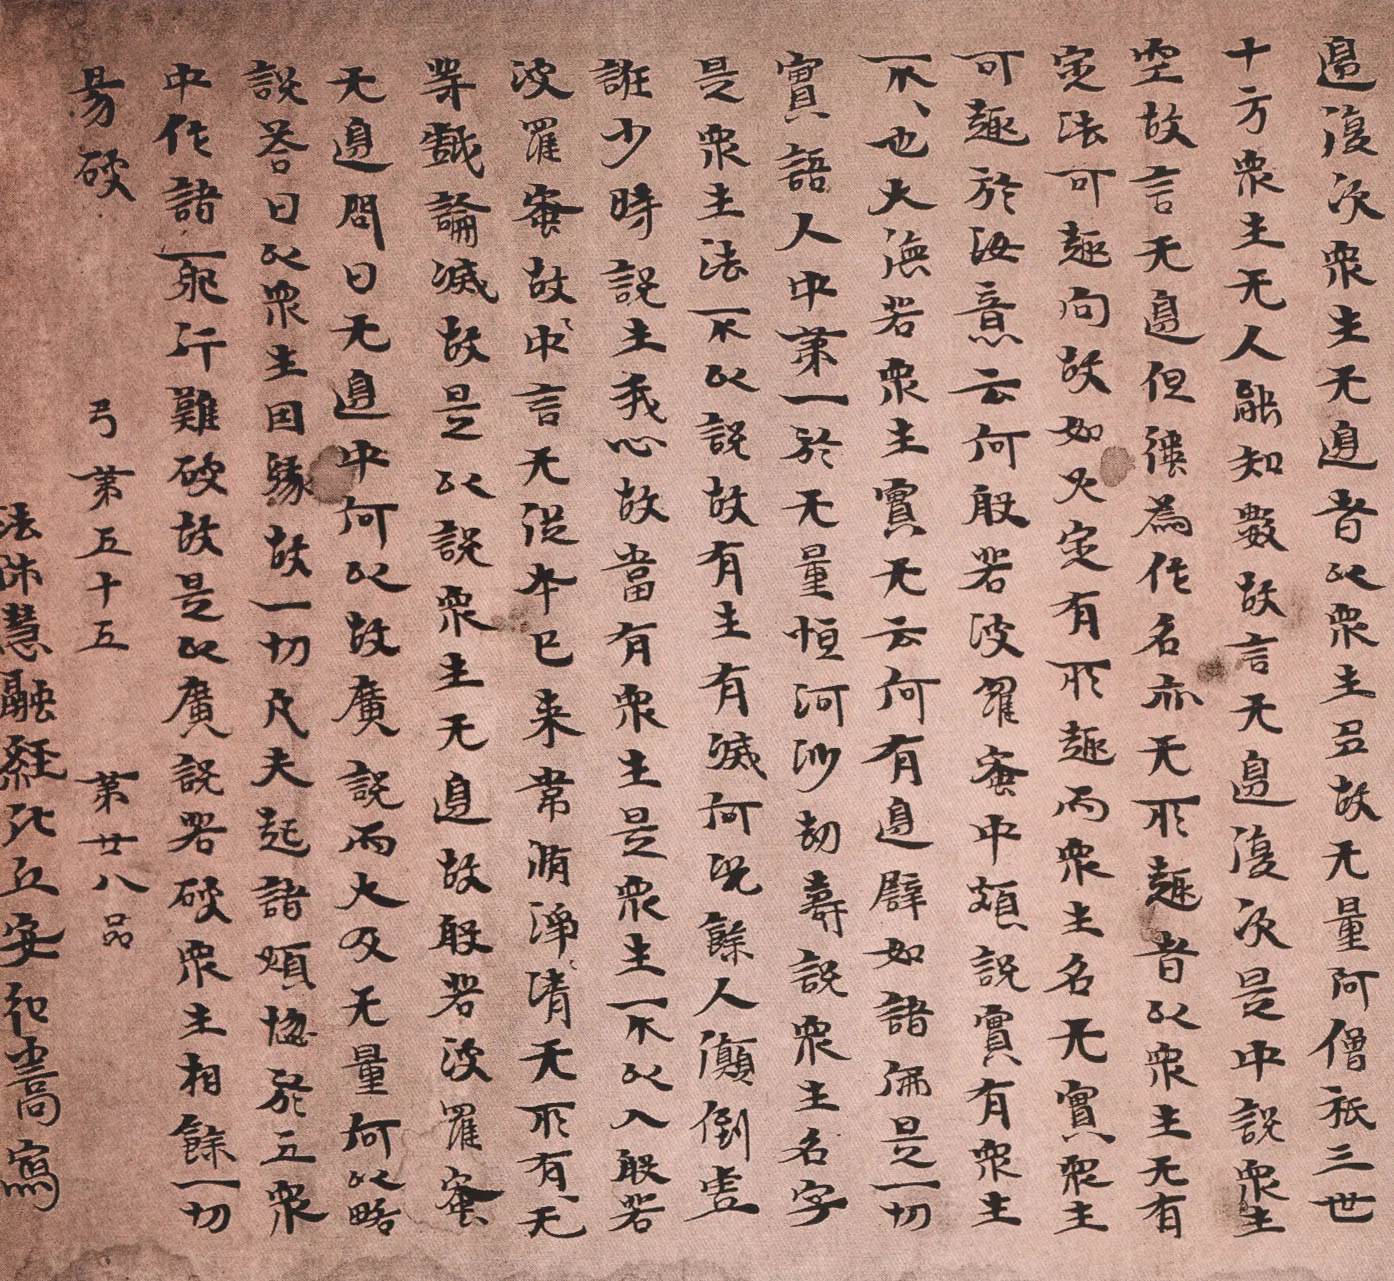 邊復次眾生无邊者以眾生多故无量阿僧祇三世
十方眾生无人能知數故言无邊復次是中說眾生
空故言无邊但彊為作名亦无所趣者以眾生无有
定法可趣向故如火定有所趣而眾生名无實眾生
可趣於汝意云何般若波羅蜜中頗說實有眾生
不、也大德若眾生實无云何有邊譬如諸佛是一切
實語人中第一於无量恒河沙劫壽說眾生名字
是眾生法不以說故有生有滅何況餘人顛倒虛
誑少時說生我心故當有眾生是眾生不以入般若
波羅蜜故中言无從本已来常清淨清无所有无
等戲論滅故是以說眾生无邊故般若波羅蜜
无邊問曰无邊中何以故廣說而大及无量何以略
說答曰以眾生因緣故一切凡夫起諸煩惱於五眾
中作諸耶行難破故是以廣說若破眾生相餘一切
易破 弓第五十五 第廿八品
法師慧融經比丘安弘嵩寫